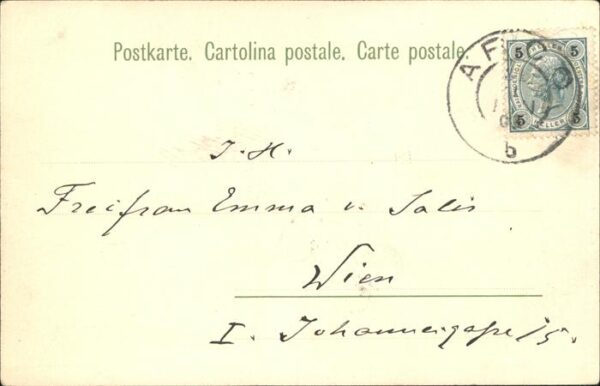 Postkarte. Cartolina postale. Carte postale
5 HELLER 5
5 HELLER 5
b
I. H.
Freifrau Emma v. Salis
Wien
I. Johannesgasse 15.